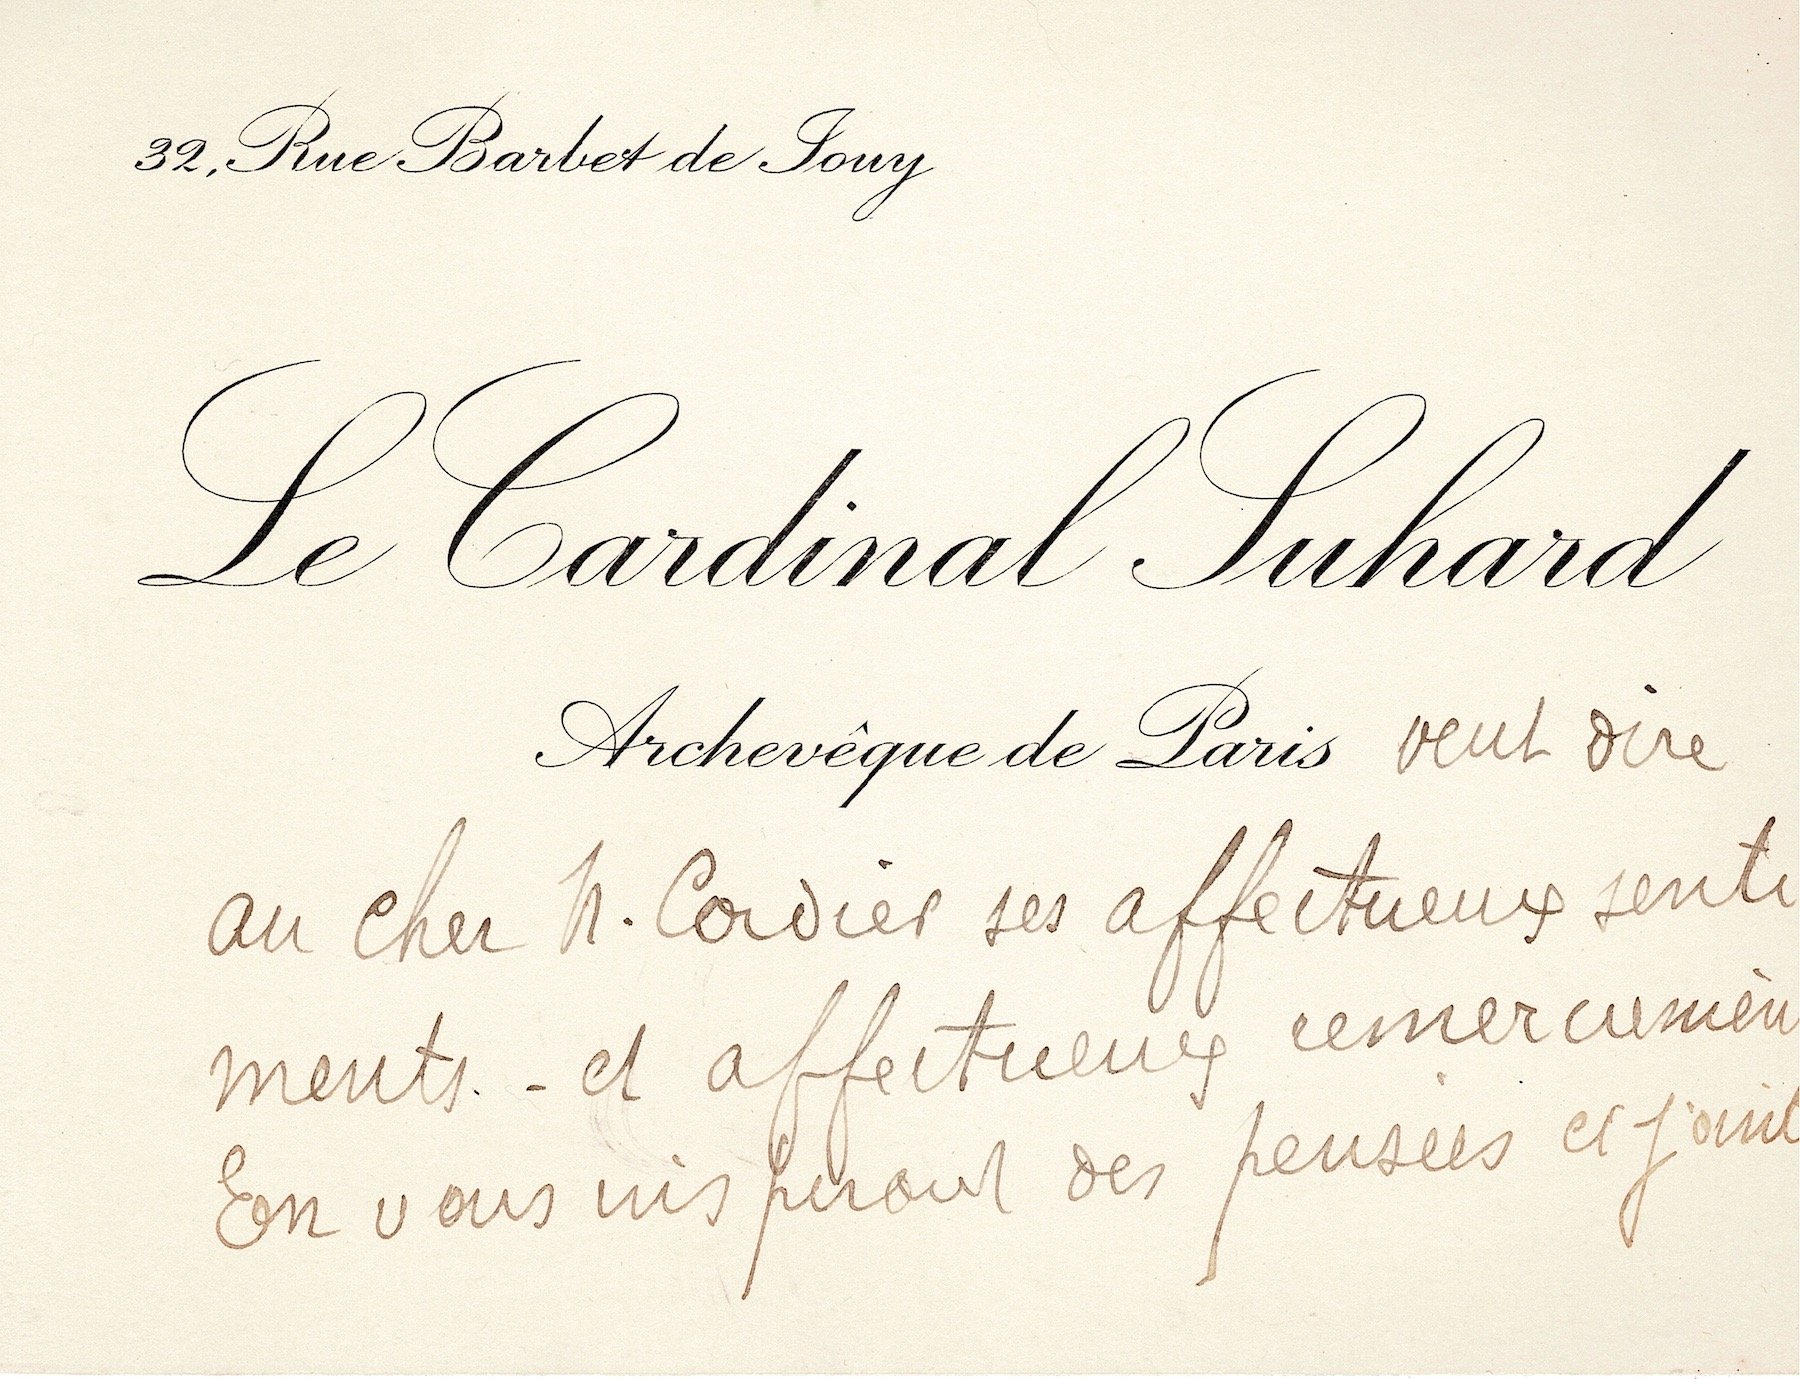 32, Rue Barbet de Jouy
Le Cardinal Suhard
Archevêque de Paris veut dire
au cher M. Cordier ses affectueux senti
ments. - et affectueux remerciemen
En vous inspirant des pensées et joint